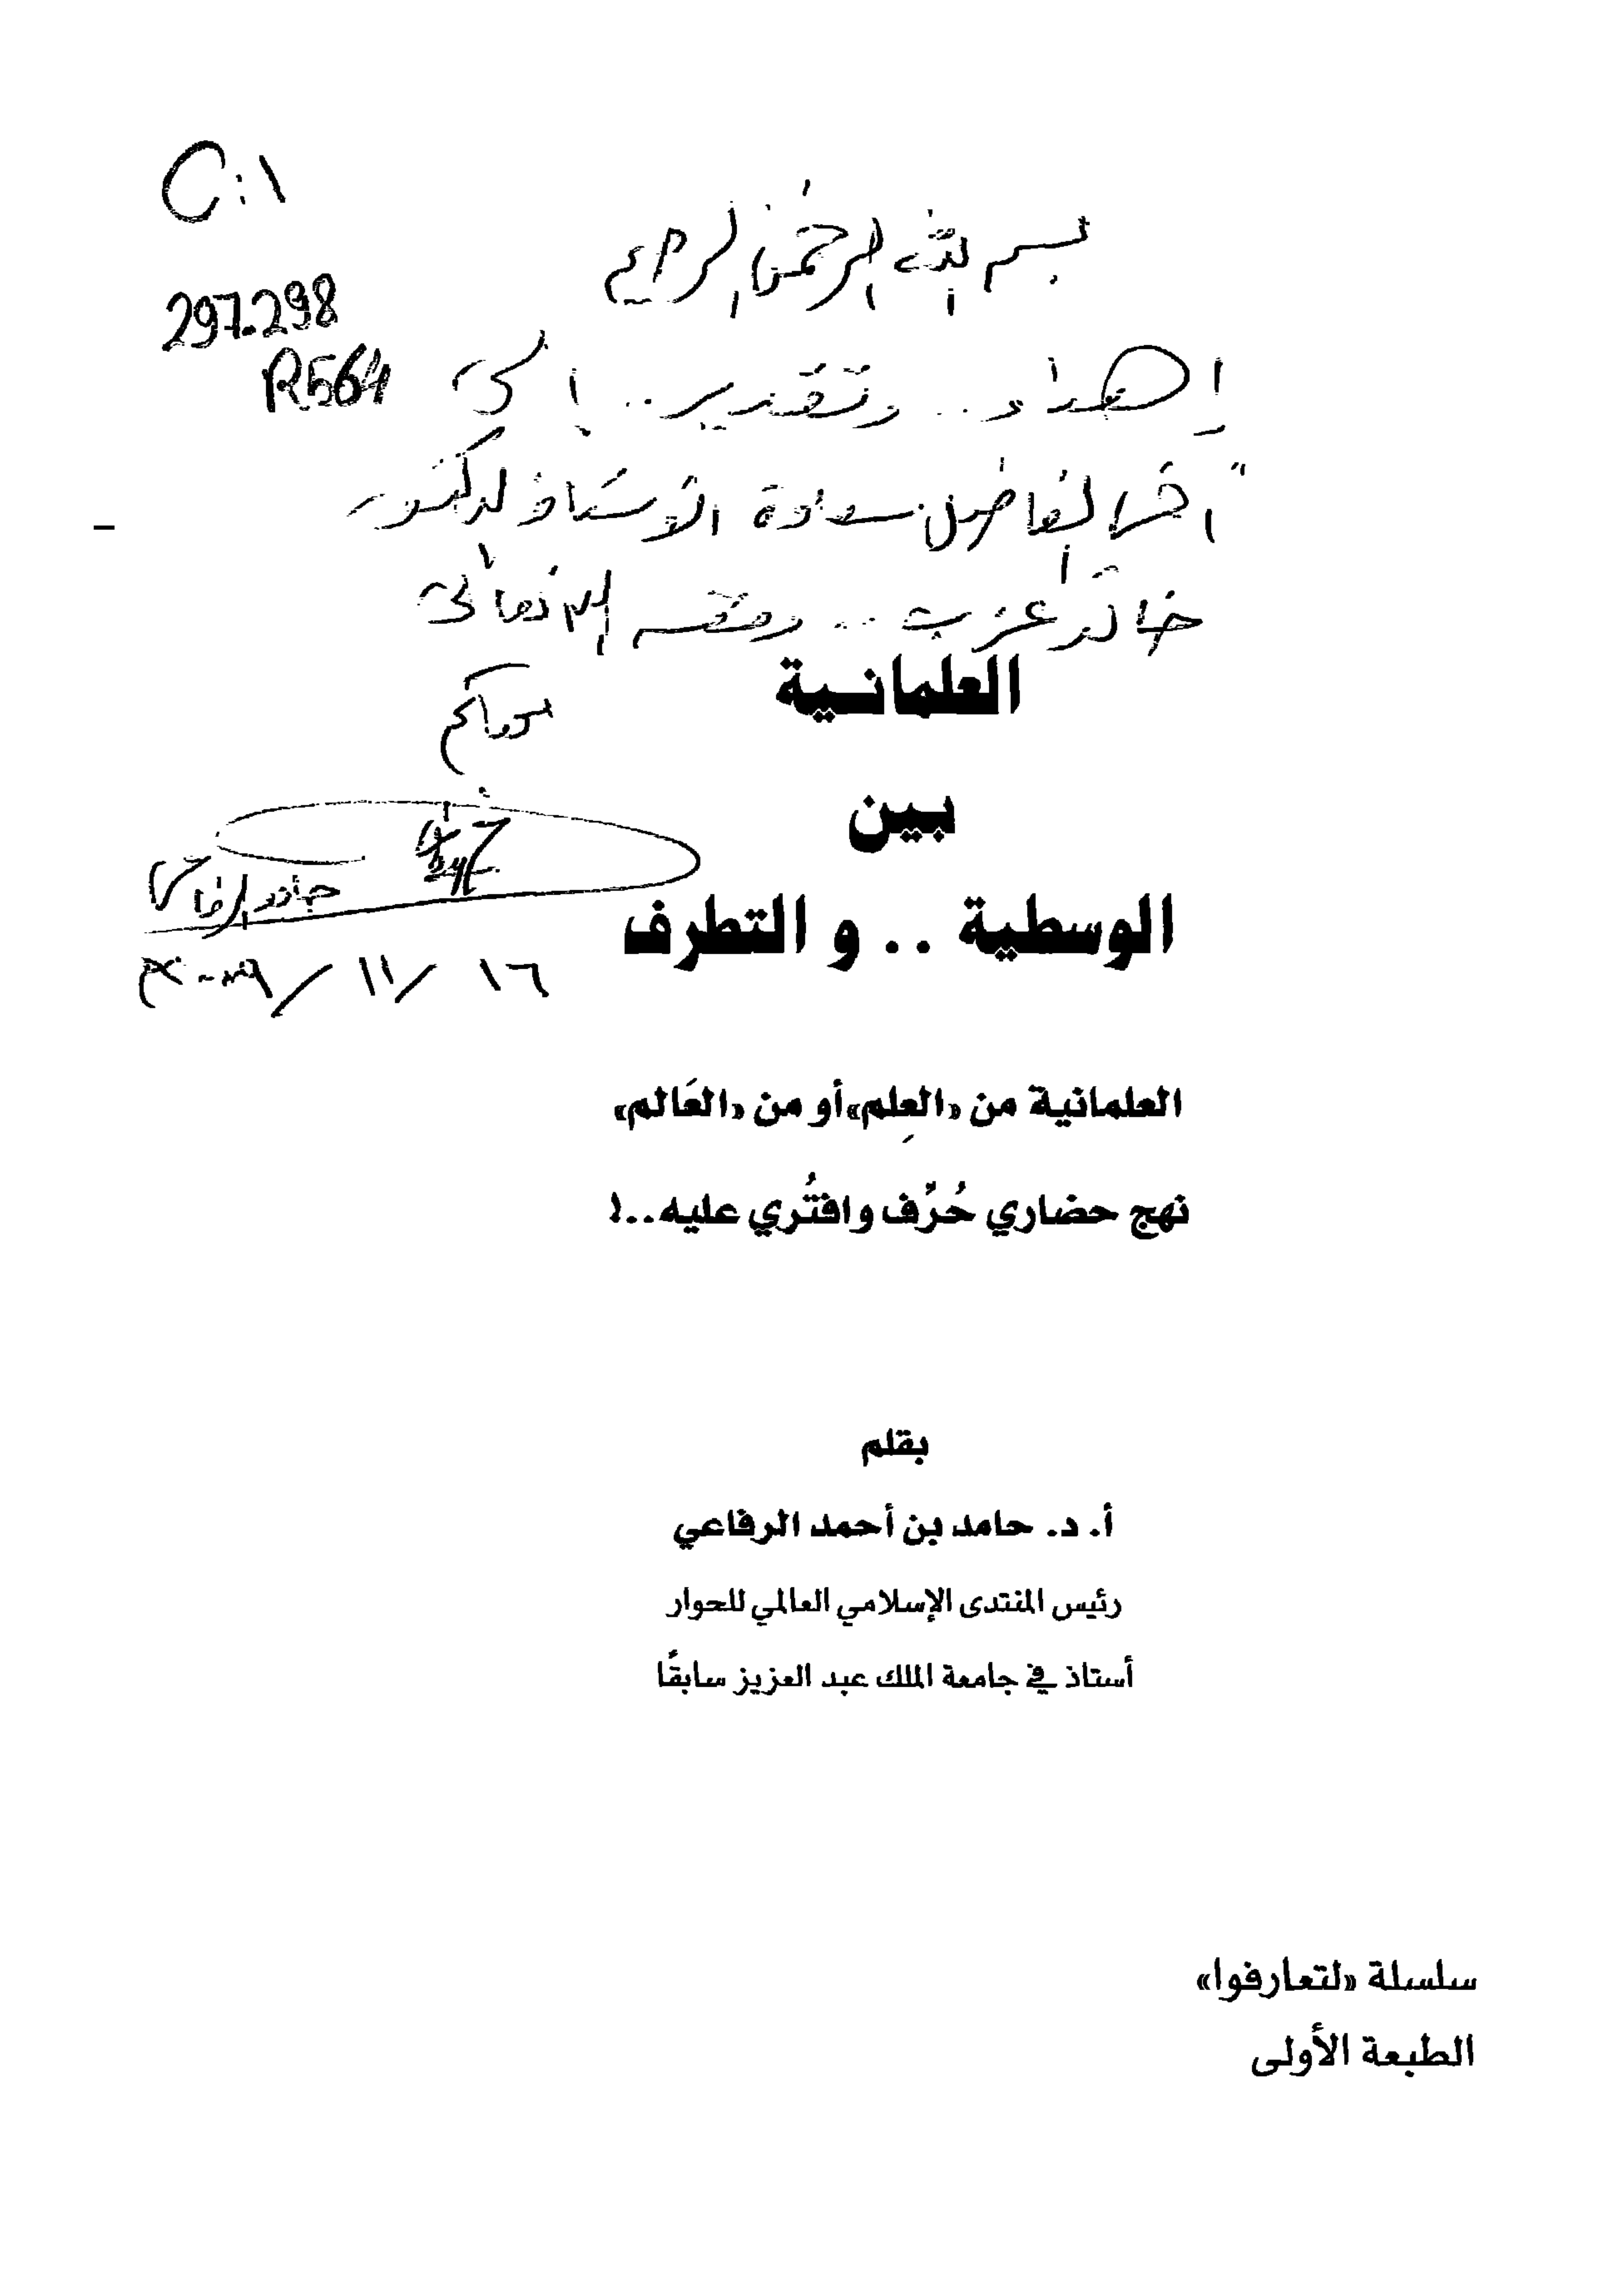 C:1
297.298
R564
بسم الله الرحمن الرحيم
إهداء .. وتقدير .. إلى
الفاضل سعادة الأستاذ الدكتور
خالد عزب .. وفقه الله تعالى
العلمانية
بين
الوسطية .. و التطرف
حامد الرفاعي
١٦ / ١١ /
العلمانية من «العِلم» أو من «العَالم»
نهج حضاري حُرِّف وافتُري عليه..!
بقلم
أ. د. حامد بن أحمد الرفاعي
رئيس المنتدى الإسلامي العالمي للحوار
أستاذ في جامعة الملك عبد العزيز سابقًا
سلسلة «لتعارفوا»
الطبعة الأولى